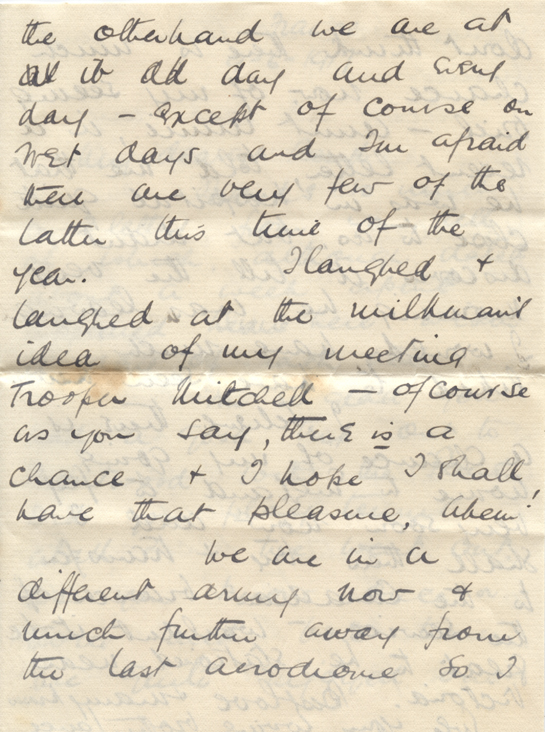 the otherhand we are at
at it all day and every
day – except of course on
wet days and I'm afraid
there are very few of the
latter this time of the
year. I laughed &
laughed at the milkman's
idea of my meeting
Trooper Mitchell – ofcourse
as you say, there is a
chance & I hope I shall
have that pleasure, ahem!
We are in a
different army now &
much further away from
the last aerodrome so I